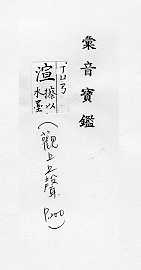 彙音寶鑑
渲 ㄒㄩㄢ
擦以
水墨
(觀上上聲
P.200)